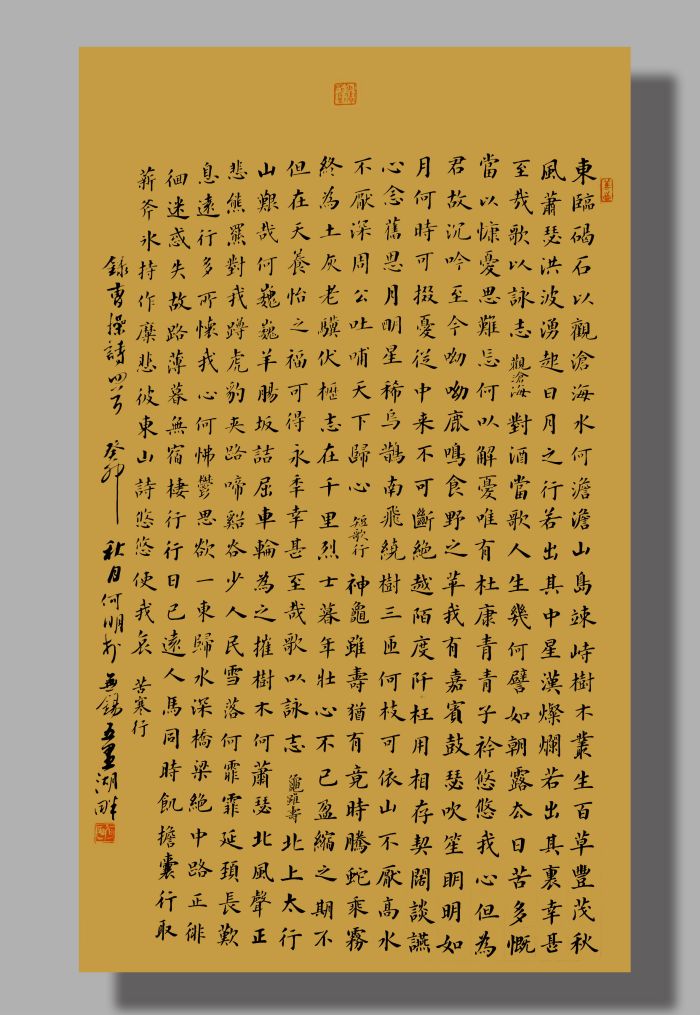 東臨碣石以觀滄海水何澹澹山島竦峙樹木叢生百草豐茂秋
風蕭瑟洪波湧起日月之行若出其中星漢燦爛若出其裏幸甚
至哉歌以詠志 觀滄海 對酒當歌人生幾何譬如朝露去日苦多慨
當以慷憂思難忘何以解憂唯有杜康青青子衿悠悠我心但為
君故沉吟至今呦呦鹿鳴食野之苹我有嘉賓鼓瑟吹笙明明如
月何時可掇憂從中来不可斷絕越陌度阡枉用相存契闊談讌
心念舊恩月明星稀烏鵲南飛繞樹三匝何枝可依山不厭高水
不厭深周公吐哺天下歸心 短歌行 神龜雖壽猶有竟時騰蛇乘霧
終為土灰老驥伏櫪志在千里烈士暮年壯心不已盈縮之期不
但在天養怡之福可得永年幸甚至哉歌以詠志 龜雖壽 北上太行
山艱哉何巍巍羊腸坂詰屈車輪為之摧樹木何蕭瑟北風聲正
悲熊羆對我蹲虎豹夾路啼谿谷少人民雪落何霏霏延頸長歎
息遠行多所懷我心何怫鬱思欲一東歸水深橋梁絕中路正徘
徊迷惑失故路薄暮無宿棲行行日已遠人馬同時飢擔囊行取
薪斧氷持作糜悲彼東山詩悠悠使我哀 苦寒行
錄曹操詩四首 癸卯秋月何明於無錫五里湖畔